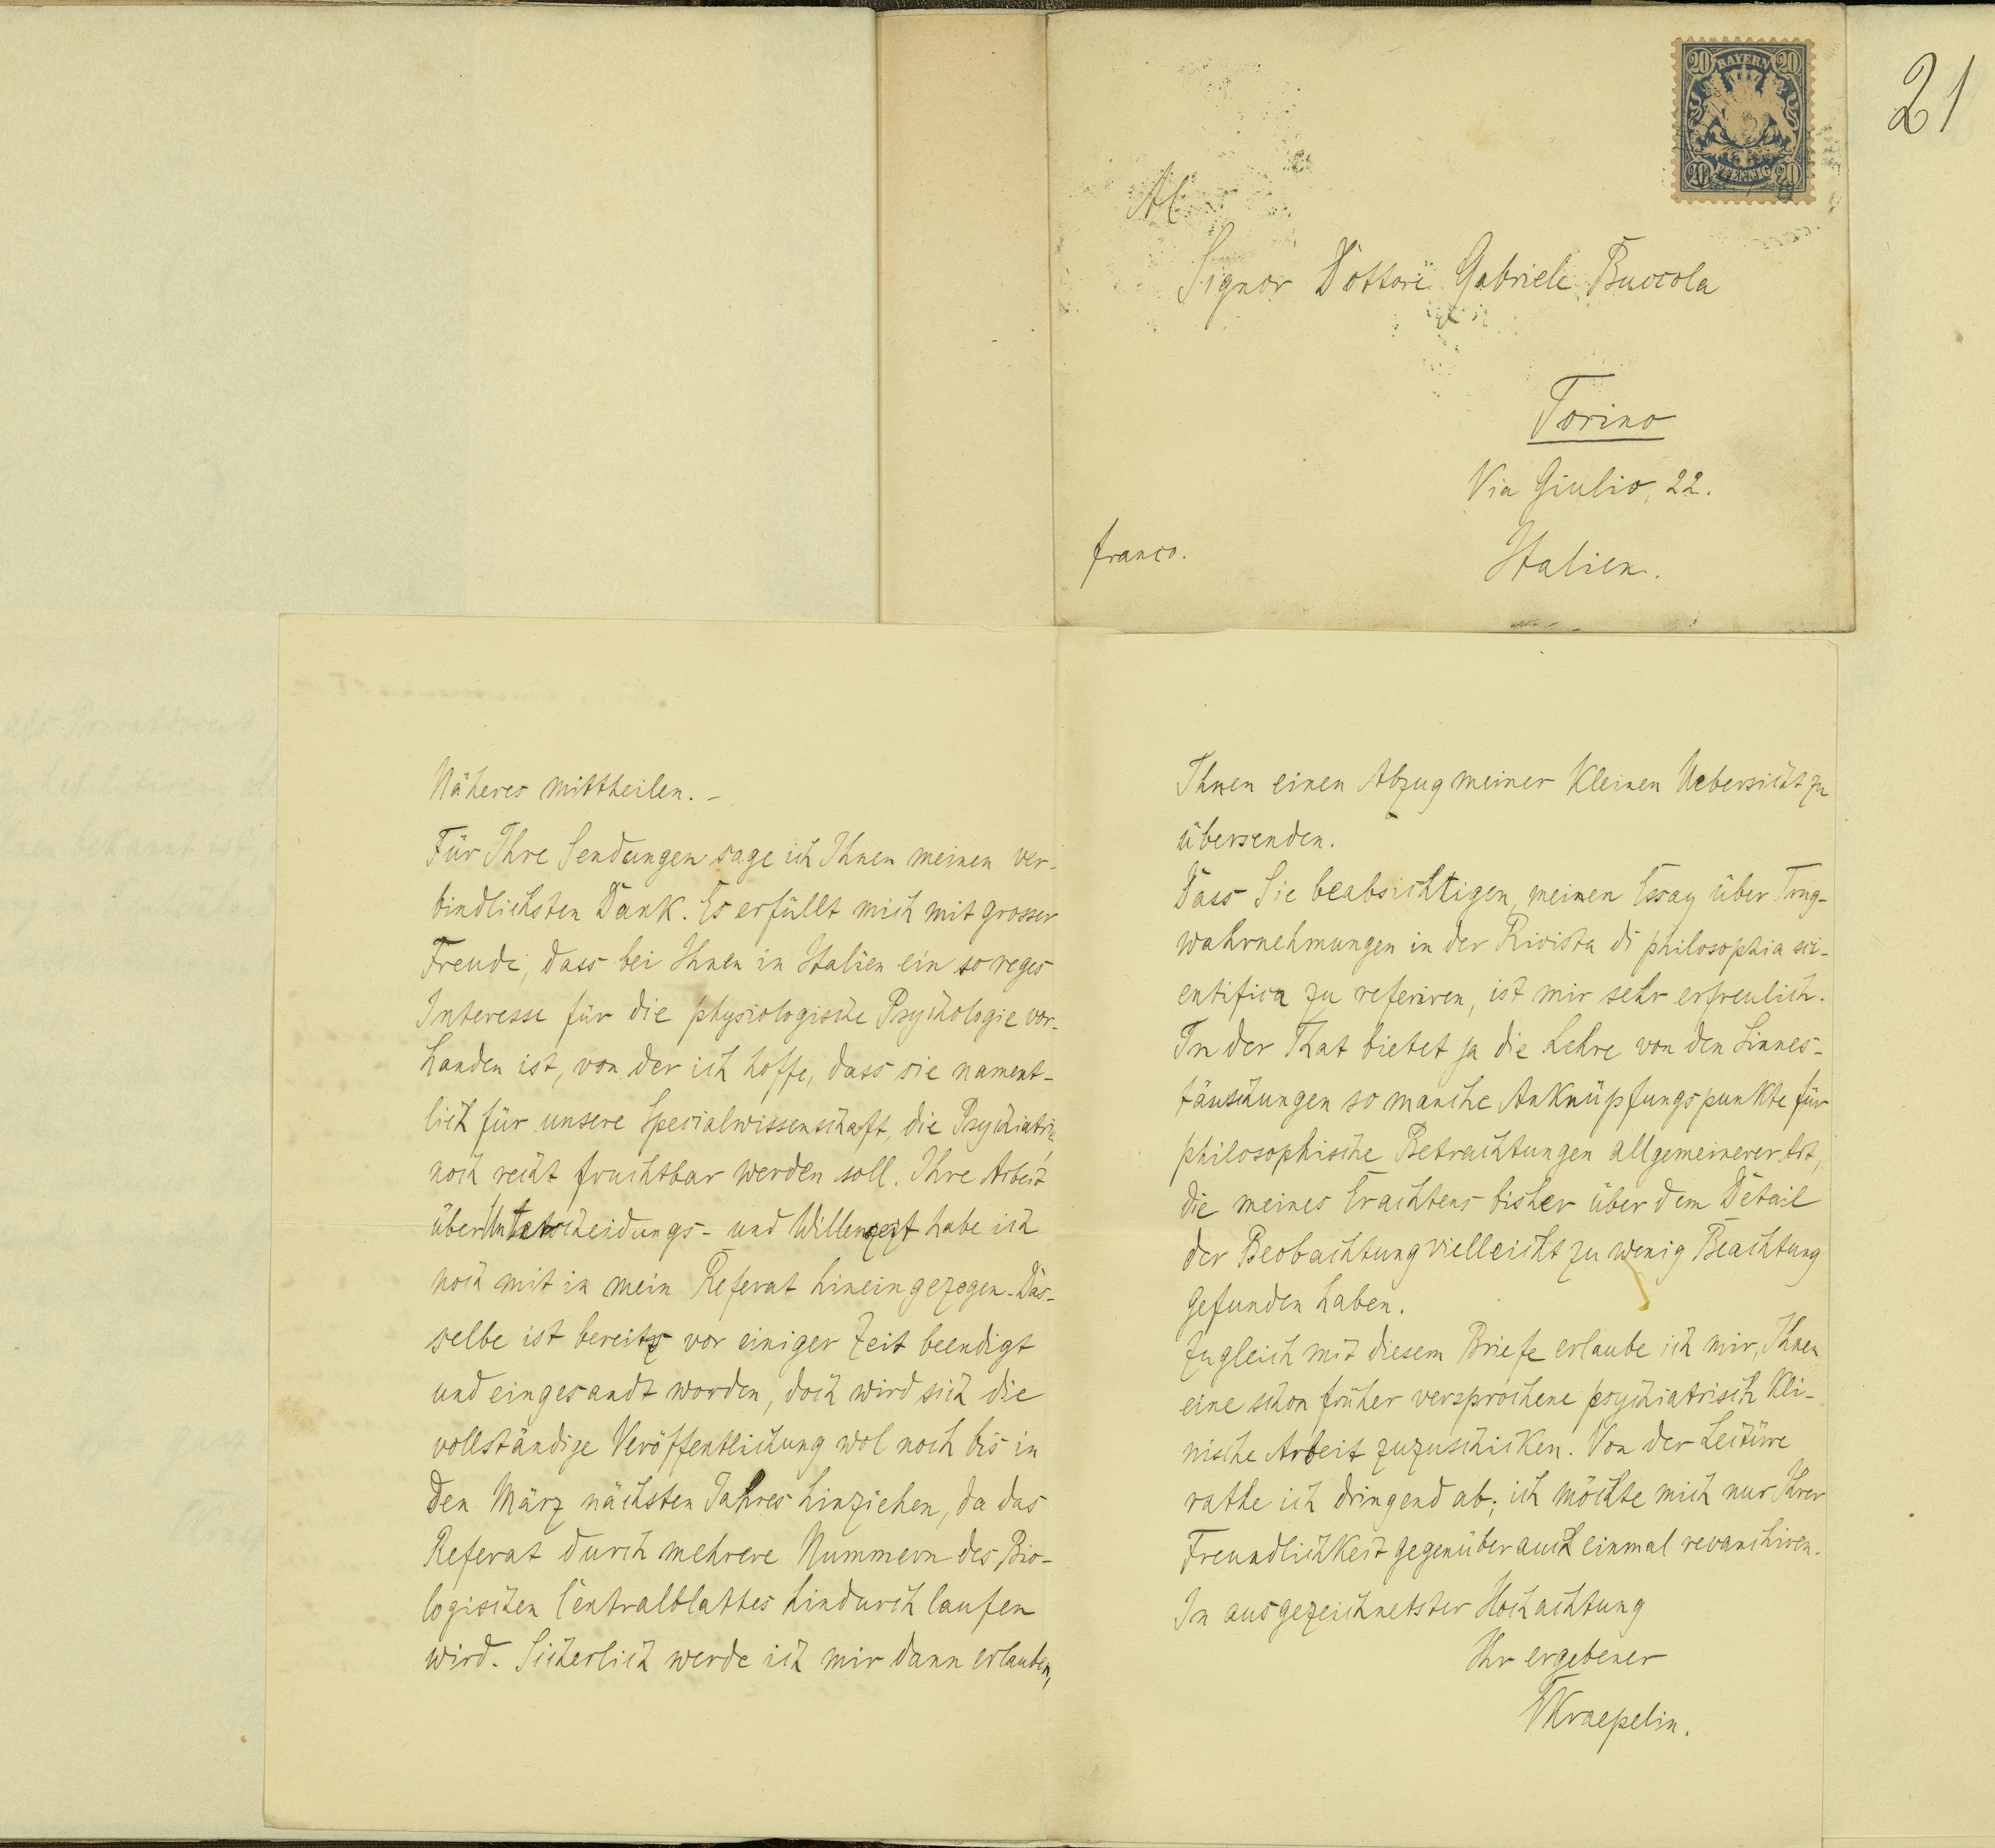 21
20 BAYERN 20
20 PFENNIG 20
Al
Signor Dottore Gabriele Buccola
Torino
Via Giulio, 22.
franco.
Italien.
Näheres mittheilen. –
Für Ihre Sendungen sage ich Ihnen meinen ver-
bindlichsten Dank. Es erfüllt mich mit grosser
Freude, dass bei Ihnen in Italien ein so reges
Interesse für die physiologische Psychologie vor-
handen ist, von der ich hoffe, dass sie nament-
lich für unsere Specialwissenschaft, die Psychiatrie,
noch recht fruchtbar werden soll. Ihre Arbeit
über Unterscheidungs- und Willenszeit habe ich
noch mit in mein Referat hineingezogen. Das-
selbe ist bereits vor einiger Zeit beendigt
und eingesandt worden, doch wird sich die
vollständige Veröffentlichung wol noch bis in
den März nächsten Jahres hinziehen, da das
Referat durch mehrere Nummern des Bio-
logischen Centralblattes hindurch laufen
wird. Sicherlich werde ich mir dann erlauben,
Ihnen einen Abzug meiner kleinen Uebersicht zu
übersenden.
Dass Sie beabsichtigen, meinen Essay über Trug-
wahrnehmungen in der Rivista di philosophia sci-
entifica zu referiren, ist mir sehr erfreulich.
In der That bietet ja die Lehre von den Sinnes-
täuschungen so manche Anknüpfungspunkte für
philosophische Betrachtungen allgemeinerer Art,
die meines Erachtens bisher über dem Detail
der Beobachtung vielleicht zu wenig Beachtung
gefunden haben.
Zugleich mit diesem Briefe erlaube ich mir, Ihnen
eine schon früher versprochene psychiatrisch kli-
nische Arbeit zuzuschicken. Von der Lectüre
rathe ich dringend ab; ich möchte mich nur Ihrer
Freundlichkeit gegenüber auch einmal revanchiren.
In ausgezeichnetster Hochachtung
Ihr ergebener
EKraepelin.